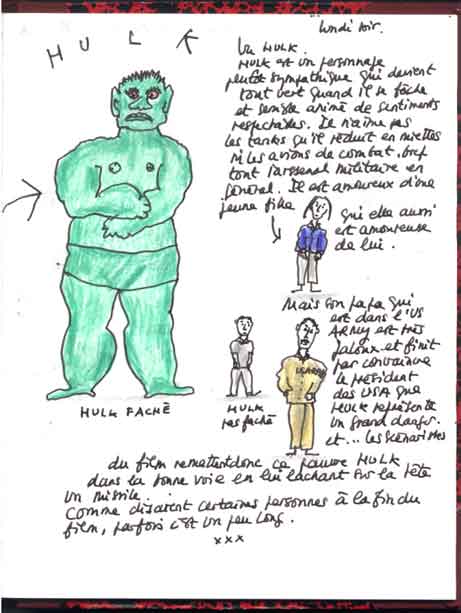 HULK
lundi soir.
Vu HULK.
HULK est un personnage
plutôt sympathique qui devient
tout vert quand il se fâche
et semble animé de sentiments
respectables. Il n'aime pas
les tanks qu'il réduit en miettes
ni les avions de combat. bref
tout l'arsenal militaire en
général. Il est amoureux d'une
jeune fille
qui elle aussi
est amoureuse
de lui.
Mais son papa qui
est dans l'US
ARMY est très
jaloux et finit
par convaincre
le président
des USA que
HULK représente
un grand danger.
et... les scénaristes
US ARMY
HULK FACHÉ
HULK
pas faché
du film remettent donc ce pauvre HULK
dans la bonne voie en lui lachant sur la tête
un missile.
Comme disaient certaines personnes à la fin du
film, parfois c'est un peu long.
xxx